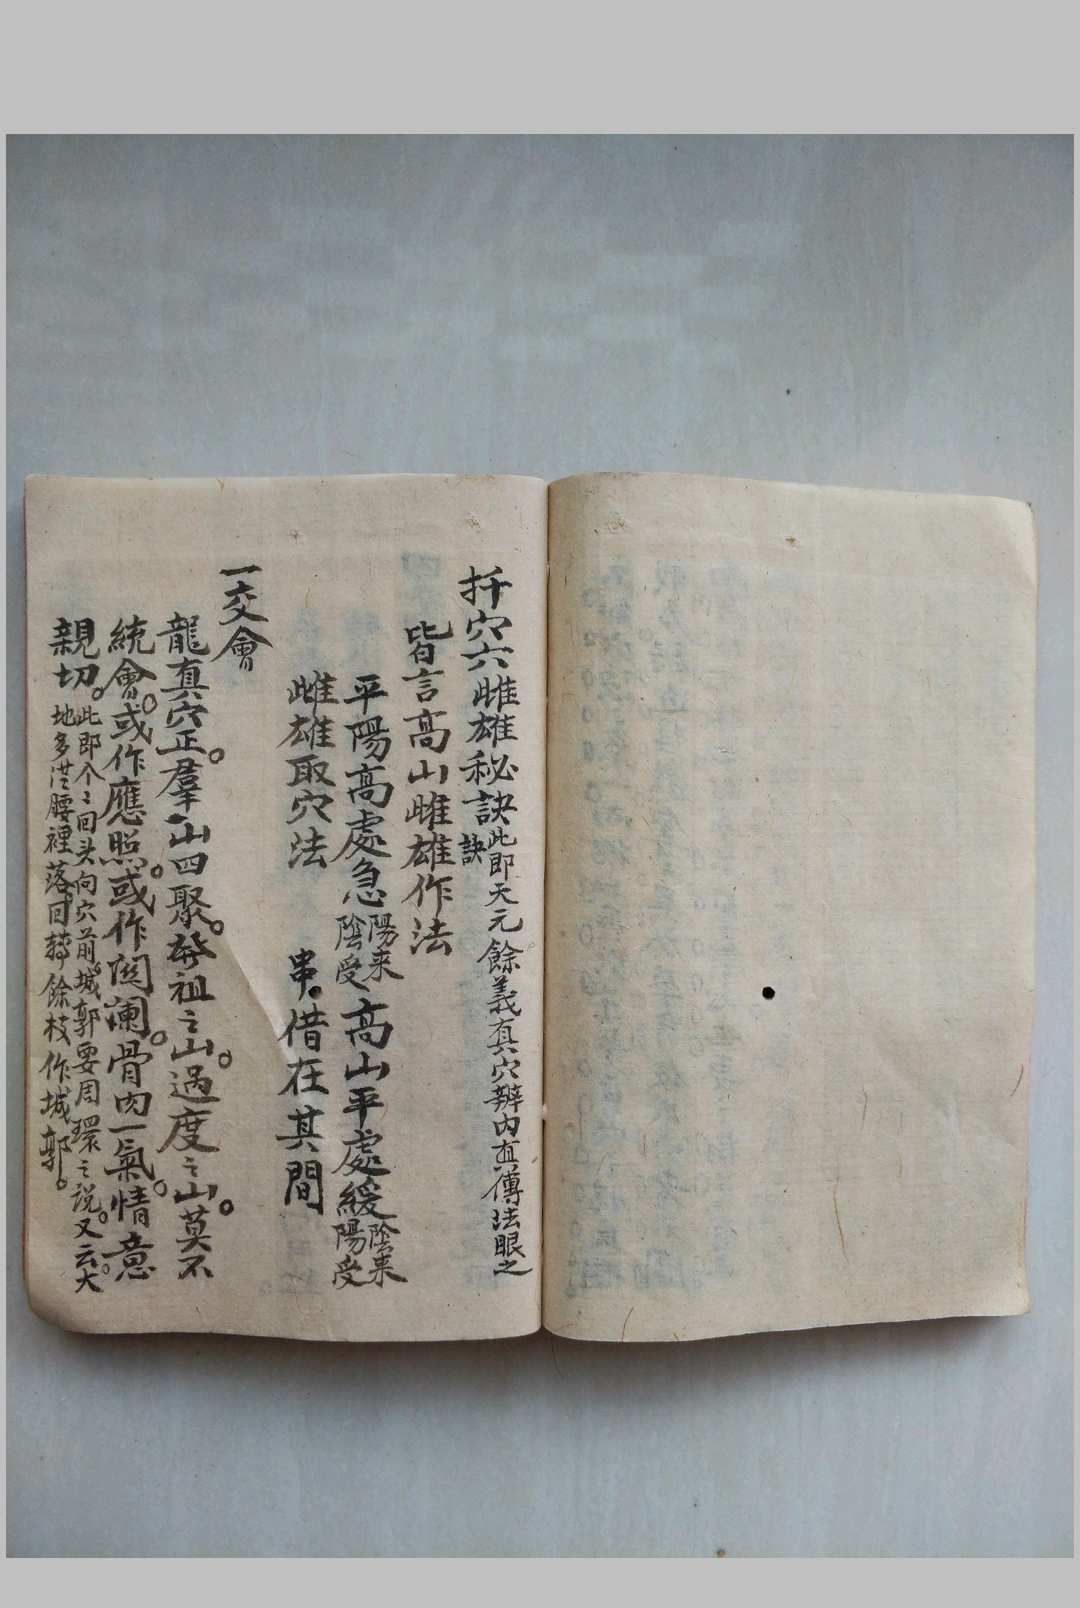 扦穴六雌雄秘訣此即天元餘義真穴辨內直傳法眼之
訣
皆言高山雌雄作法
平陽高處急陽来陰受高山平處緩陰來陽受
雌雄取穴法 串借在其間
一交會
龍真穴正。羣山四聚。發祖之山。過度之山。莫不
統會。或作應照。或作関闌。骨肉一氣。情意
親切。此即个〻回头向穴前城郭要周環之説。又云大
地多従腰裡落回轉餘枝作城郭。